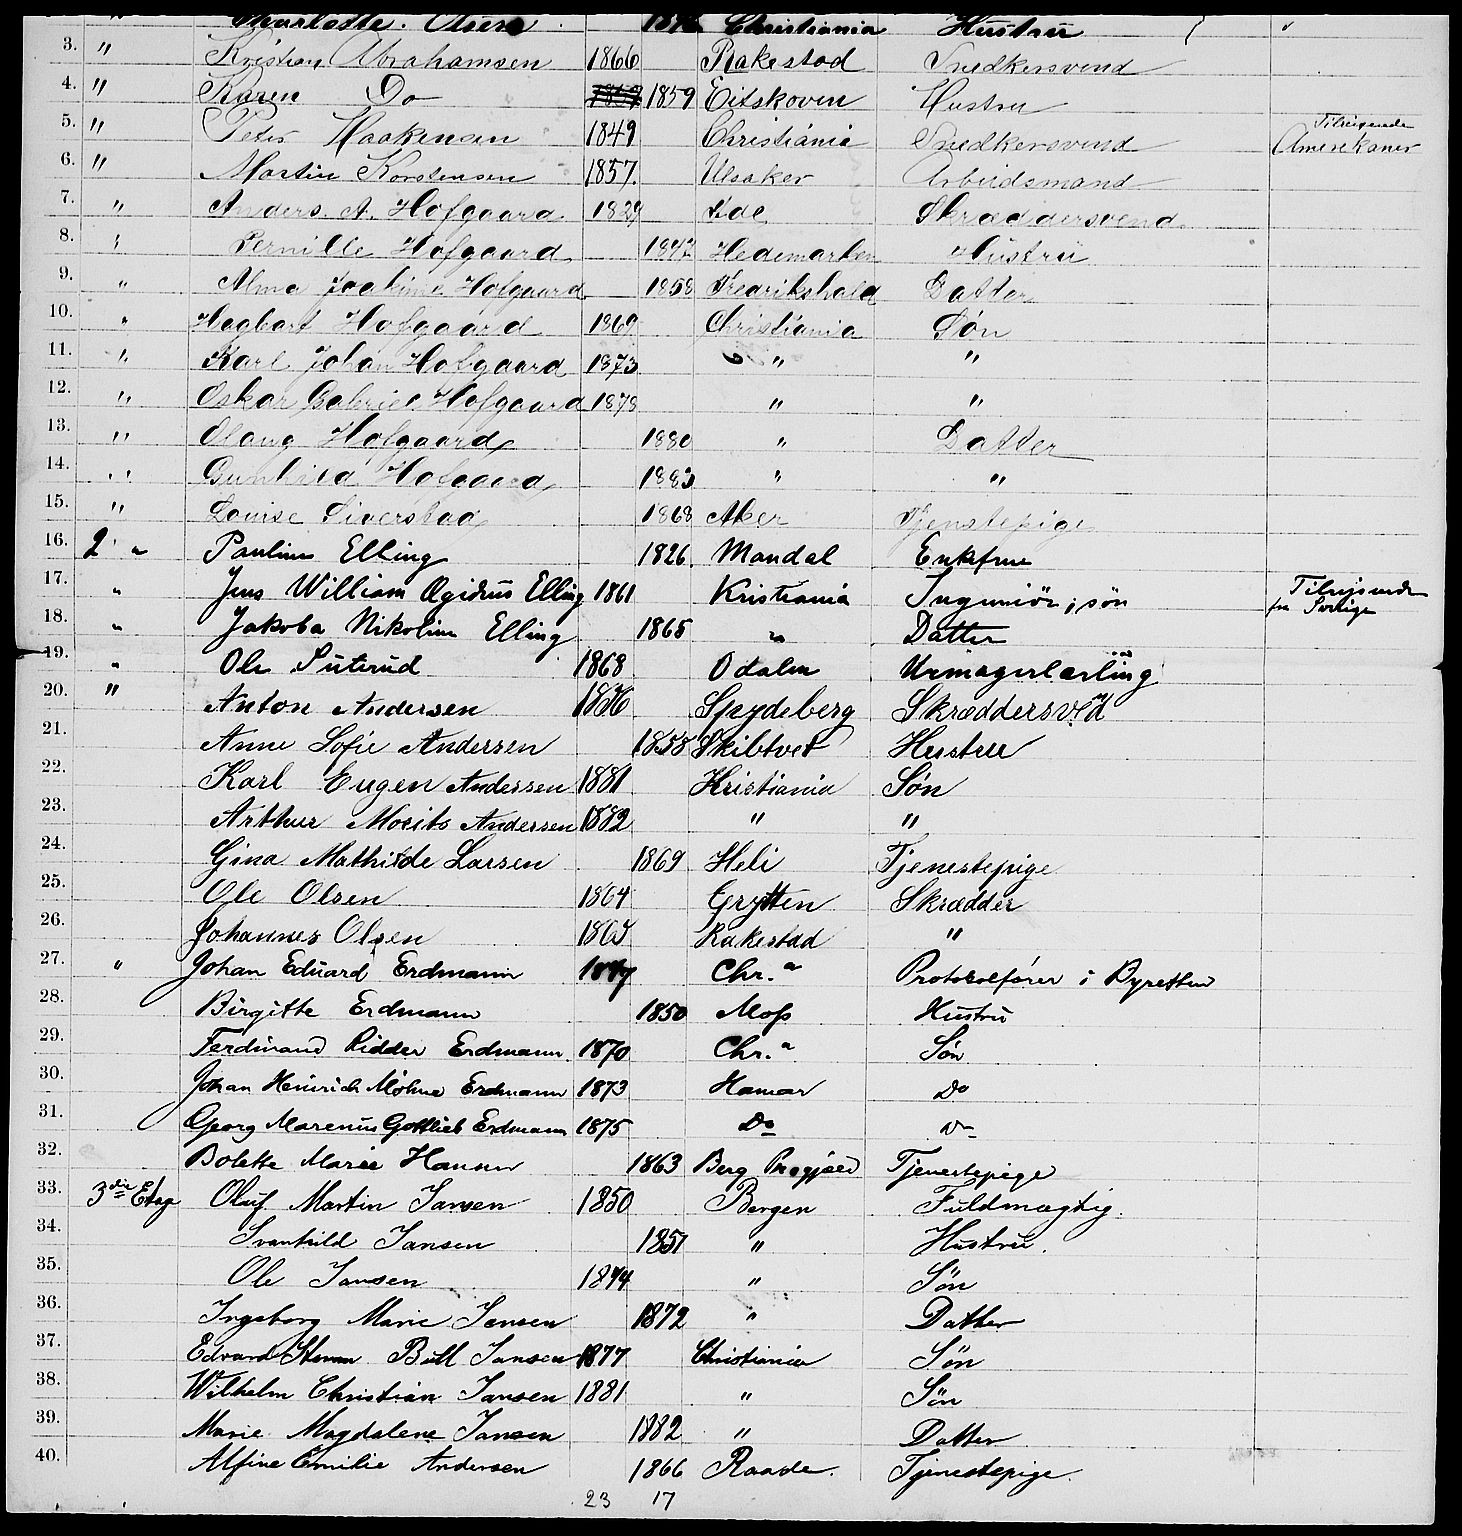 Charlotte Olsen Christiania Hustru
3. " Kristian Abrahamsen 1866 Rakestad Snedkersvend
4. " Karen Do 1859 Eidskoven Hustru
5. " Peter Haakensen 1849 Christiania Snedkersvend Tilreisende Amerikaner
6. " Martin Korstensen 1857 Ulsaker Arbeidsmand
7. " Anders A. Hofgaard 1829 Ide Skræddersvend
8. " Pernille Hofgaard 1842 Hedemarken Hustru
9. " Alma Joakime Hofgaard 1858 Fredrikshald Datter
10. " Hagbart Hofgaard 1869 Christiania Søn
11. " Karl Johan Hofgaard 1873 " "
12. " Oskar Gabriel Hofgaard 1878 " "
13. " Olaug Hofgaard 1880 " Datter
14. " Gunhild Hofgaard 1883 " "
15. " Louise Siverstad 1868 Aker Tjenstepige
16. 2 " Pauline Elling 1826 Mandal Enkefrue
17. " Jens William Ægidius Elling 1861 Kristiania Ingeniør, søn Tilrejsende fra Sverige
18. " Jakoba Nikoline Elling 1865 " Datter
19. " Ole Suterud 1868 Odalen Urmagerlærling
20. " Anton Andersen 1856 Spydeberg Skræddersvnd
21. Anne Sofie Andersen 1858 Skibtvet Hustru
22. Karl Eugen Andersen 1881 Kristiania Søn
23. Arthur Morits Andersen 1882 " "
24. Gina Mathilde Larsen 1869 Heli Tjenestepige
25. Ole Olsen 1864 Grytten Skrædder
26. Johannes Olsen 1865 Rakestad "
27. " Johan Eduard Erdmann Chr.a Protocolfører i Byretten
28. Birgitte Erdmann 1850 Moss Hustru
29. Ferdinand Ridder Erdmann 1870 Chr.a Søn
30. Johan Heinrich Möhne Erdmann 1873 Hamar Do
31. Georg Marenius Gottlieb Erdmann 1875 Do Do
32. Bolette Marie Hansen 1863 Berg Tjenestepige
33. 3die Etage Oluf Martin Jansen 1850 Bergen Fuldmægtig.
34. Svanhild Jansen 1851 " Hustru.
35. Ole Jansen 1874 " Søn
36. Ingeborg Marie Jansen 1872 " Datter
37. Edvard Bull Jansen 1877 Christiania Søn
38. Wilhelm Christian Jansen 1881 " Søn
39. Marie Magdalene Jansen 1882 " Datter
40. Alfine Emilie Andersen 1866 Raade. Tjenestepige.
23 17